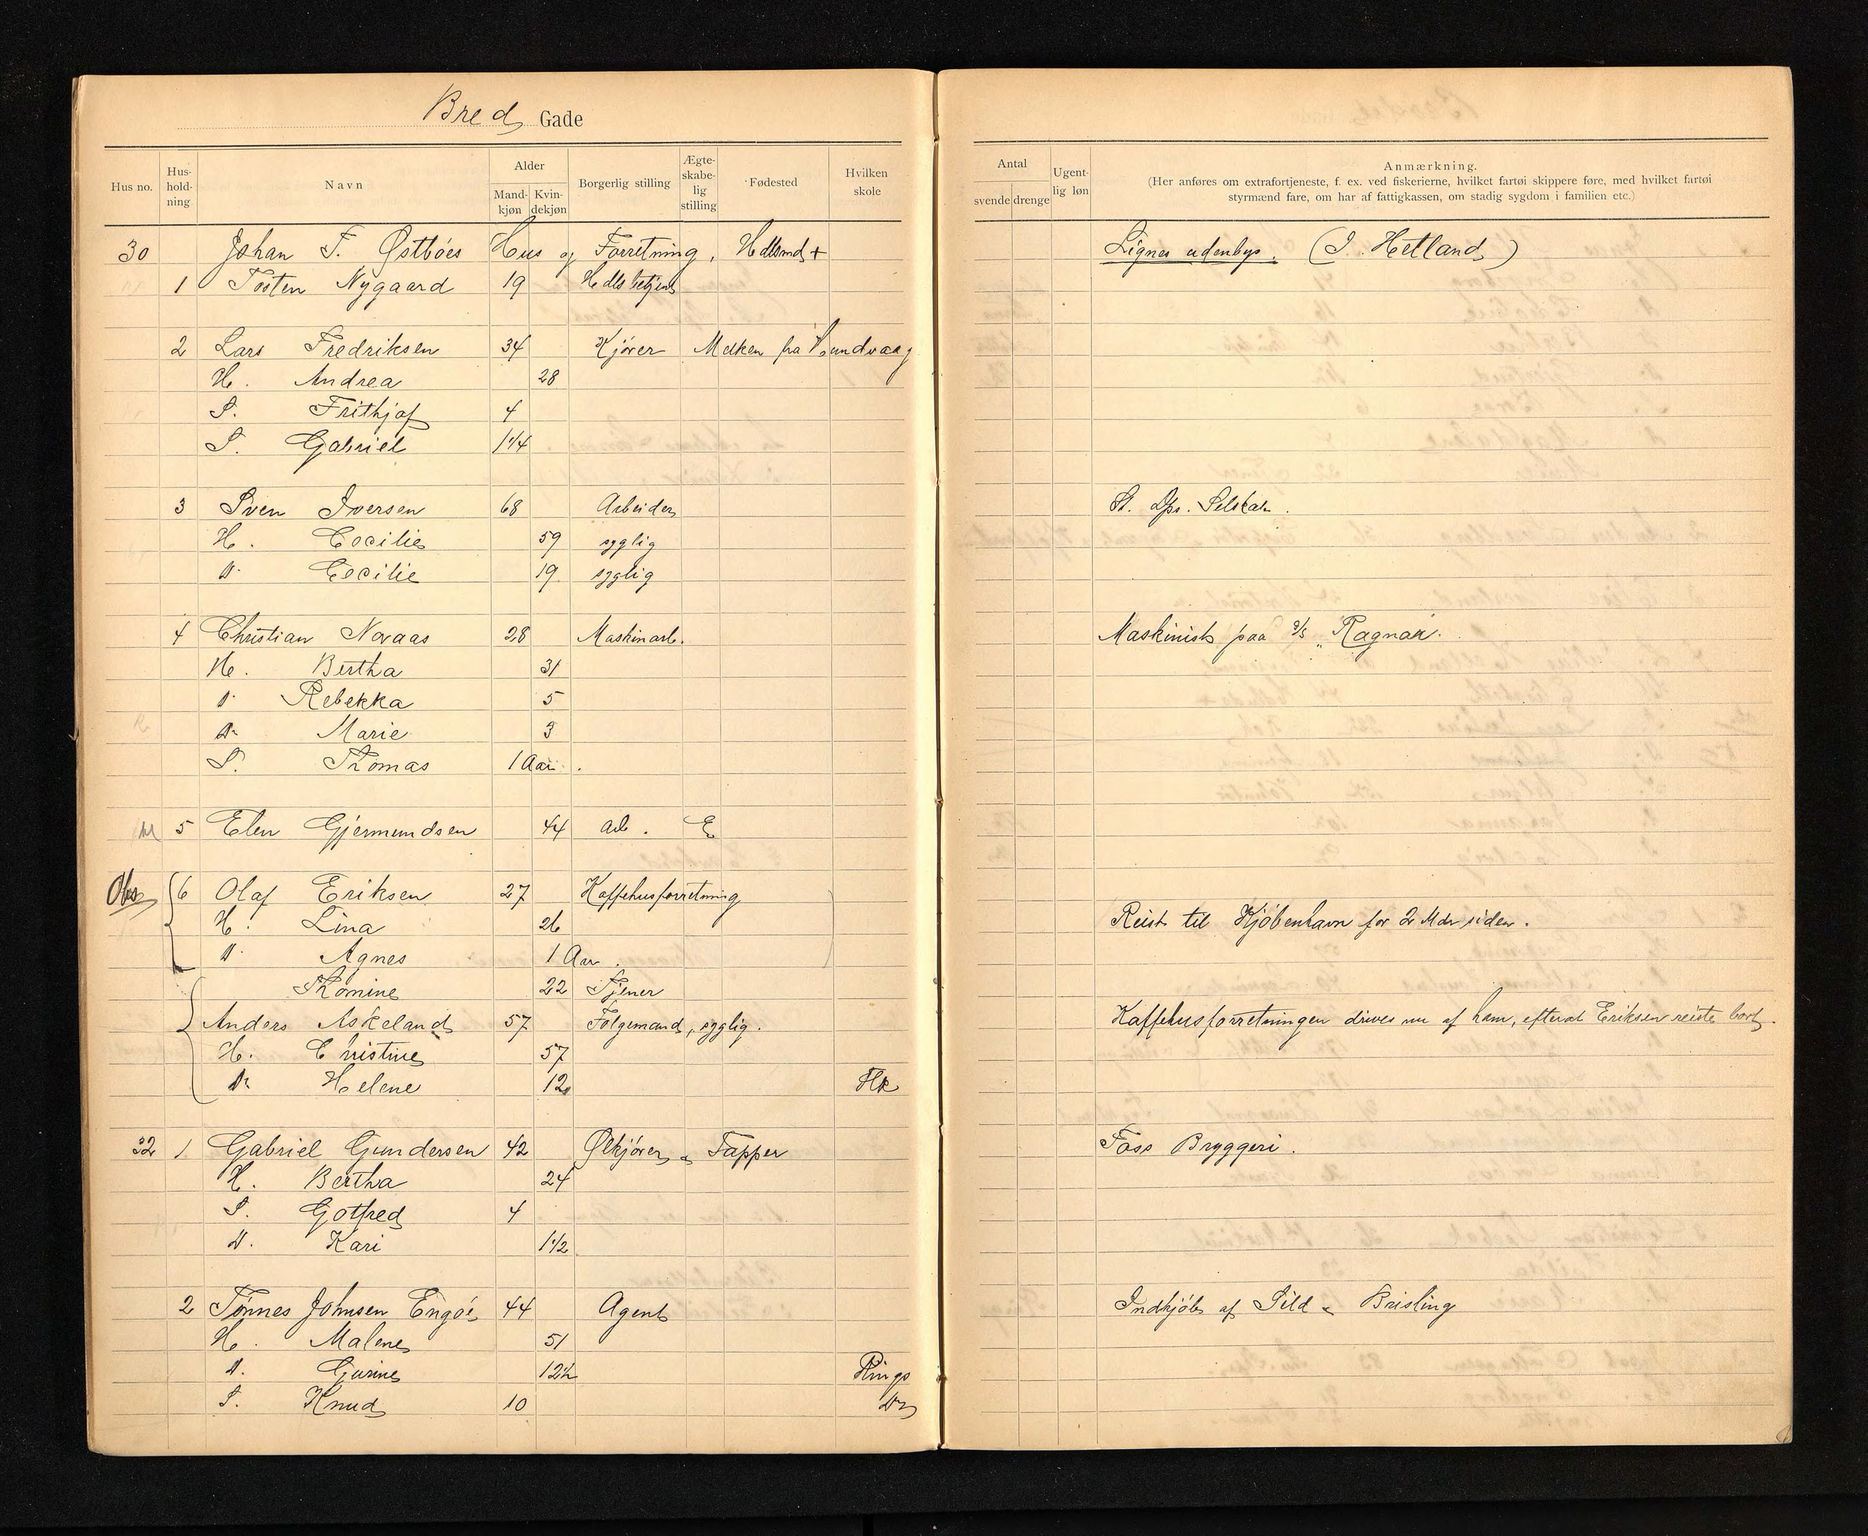 Bred Gade
Hus no. Hus-hold-ning Navn Alder Mand-kjøn Kvin-dekjøn Borgerlig stilling Ægte-skabe-lig stilling Fødested Hvilken skole
30 Johan T. Østbøes Hus og Forretning, Hdlsmd +
1 Tosten Nygaard 19 Hdlsbetjent
2 Lars Fredriksen 34 Kjører Melken fra Hundvaag
H. Andrea 28
S. Frithjof 4
S. Gabriel 1 1/4
3 Sven Iversen 68 Arbeider
H. Cecilie 59 sygelig
D. Cecilie 19 sygelig
4 Christian Novaas 28 Maskinarb.
H. Bertha 31
D. Rebekka 5
D. Marie 3
S. Thomas 1 Aar.
5 Elen Gjermundsen 44 arb. E
Obs 6 Olaf Eriksen 27 Kaffehusforretning
H. Lina 26
D. Agnes 1 Aar.
Thomine 22 Tjener
Anders Askeland 57 Følgemand, sygelig.
H. Christine 57
D. Helene 12 Flk
32 1 Gabriel Gundersen 42 Ølkjører & Tapper
H. Bertha 24
S. Gotfred 4
D. Kari 1 1/2
2 Tønnes Johnsen Engøe 44 Agent
H. Malene 51
D. Gurine 12 1/2 Rings
S. Knud 10 Do
Antal svende drenge Ugent-lig løn Anmærkning.
(Her anføres om extrafortjeneste, f. ex. ved fiskerierne, hvilket fartøi skippere føre, med hvilket fartøi
styrmænd fare, om har af fattigkassen, om stadig sygdom i familien etc.)
Lignes udenbys. (I Hetland)
St. Dps. Selskab.
Maskinist paa s/s "Ragnar".
Reist til Kjøbenhavn for 2 Mdr siden.
Kaffehusforretningen drives nu af ham, efterat Eriksen reiste bort.
Toss Bryggeri.
Indkjøb af Sild & Brisling